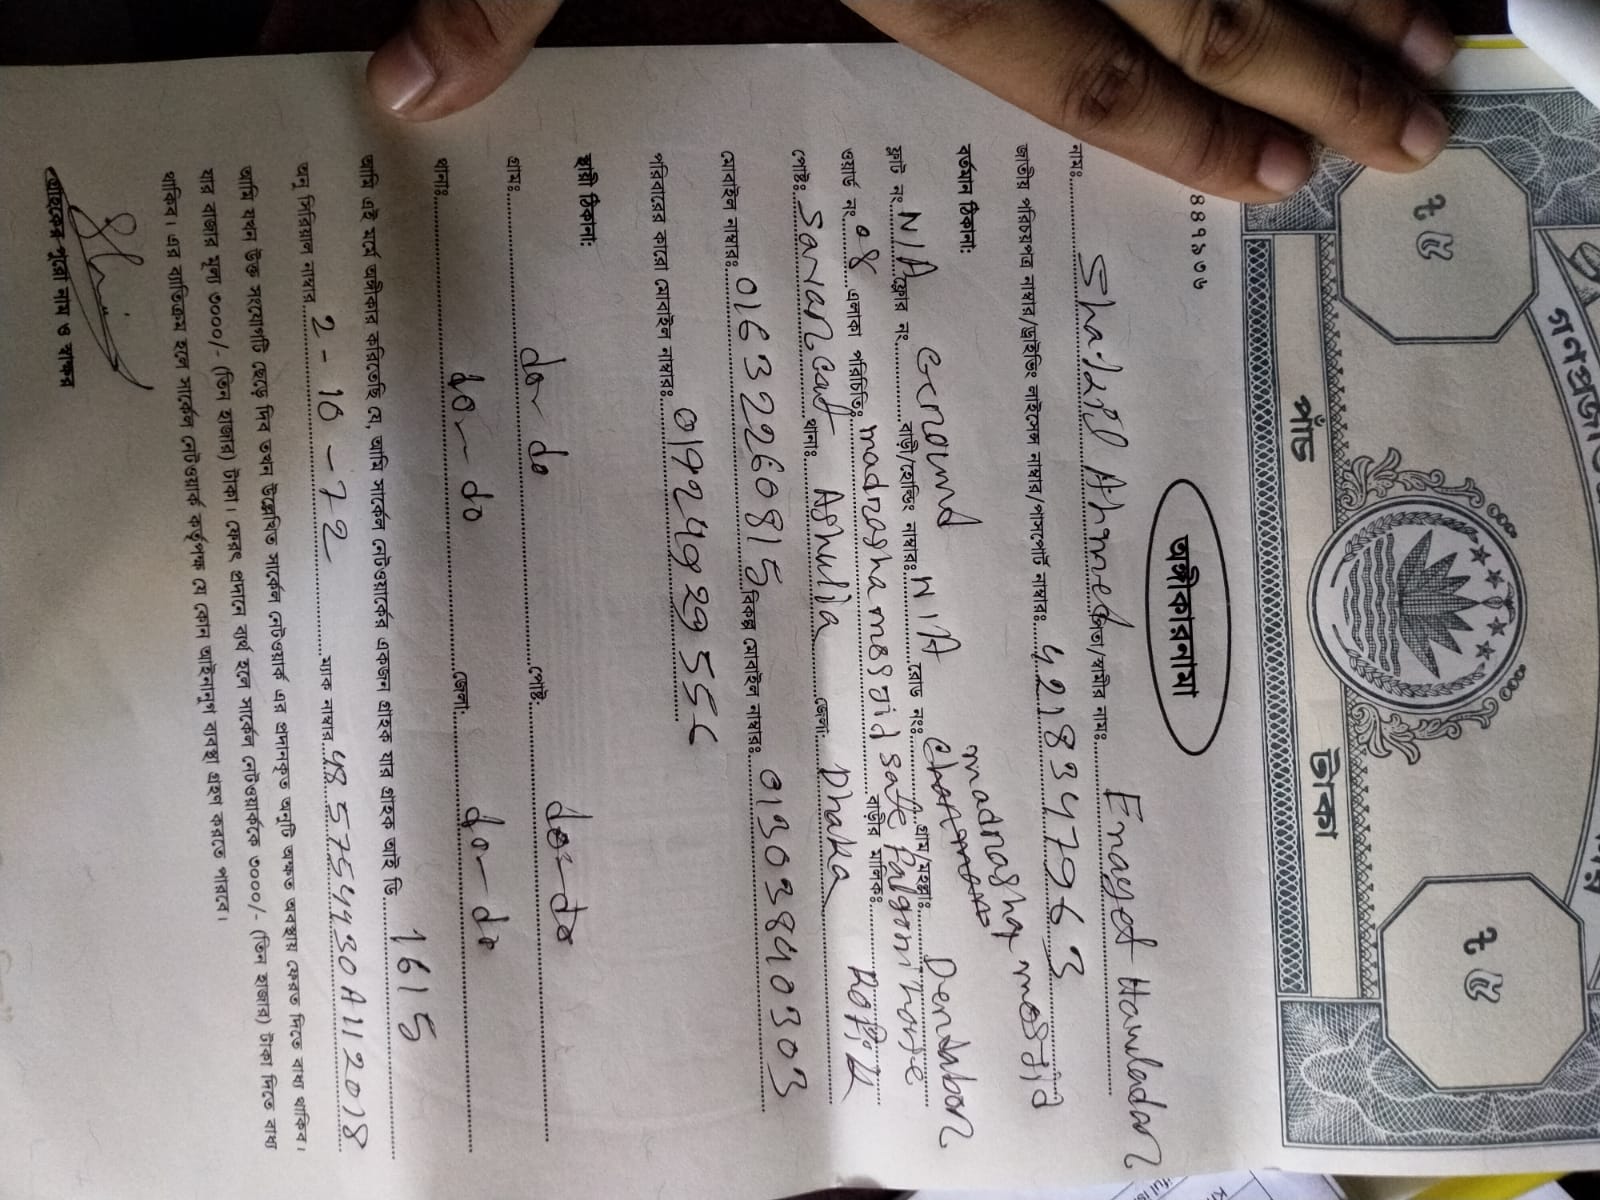 গনপ্রজাত
৳ ৫
পাঁচ টাকা
৳ ৫
৪৪৭৯৩৬
অঙ্গীকারনামা
নাম: Shakil Ahmed পিতা/স্বামীর নাম: Enayet Hawladar
জাতীয় পরিচয়পত্র নাম্বার/ড্রাইভিং লাইসেন্স নাম্বার/পাসপোর্ট নাম্বার: 4218347963
বর্তমান ঠিকানা: madrasha mosjid
ফ্লাট নং: N/A ফ্লোর নং Ground বাড়ী/হোল্ডিং নাম্বার: N/A রোড নং: গ্রাম/মহল্লা: Dendabor
ওয়ার্ড নং ০৪ এলাকা পরিচিতি: madrasha mosjid বাড়ীর মালিক: Rofik
পোষ্ট: থানা: Ashulia জেলা: Dhaka
মোবাইল নাম্বার: 01632260815 বিকল্প মোবাইল নাম্বার: 01303840303
পরিবারের কারো মোবাইল নাম্বার:
স্থায়ী ঠিকানা:
গ্রাম: do - do পোষ্ট: do - do
থানাঃ do - do জেলা: do - do
আমি এই মর্মে অঙ্গীকার করিতেছি যে, আমি সার্কেল নেটওয়ার্কের একজন গ্রাহক যার গ্রাহক আই ডি 1615
অনু সিরিয়াল নাম্বার 2-10-72 ম্যাক নাম্বার 485754430A112018
আমি যখন উক্ত সংযোগটি ছেড়ে দিব তখন উল্লেখিত সার্কেল নেটওয়ার্ক এর প্রদানকৃত অনুটি অক্ষত অবস্থায় ফেরত দিতে বাধ্য থাকিব।
যার বাজার মূল্য ৩০০০/- (তিন হাজার) টাকা। ফেরৎ প্রদানে ব্যর্থ হলে সার্কেল নেটওয়ার্ককে ৩০০০/- (তিন হাজার) টাকা দিতে বাধ্য
থাকিব। এর ব্যতিক্রম হলে সার্কেল নেটওয়ার্ক কর্তৃপক্ষ যে কোন আইনানুগ ব্যবস্থা গ্রহণ করতে পারবে।
গ্রাহকের পুরো নাম ও স্বাক্ষর